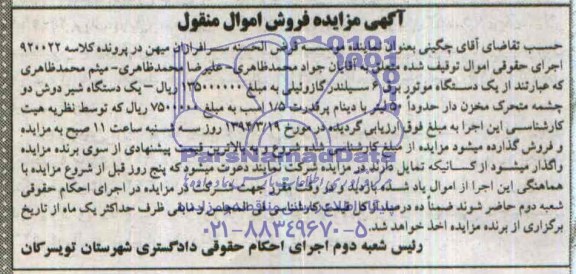 آگهی مزایده فروش اموال منقول
حسب تقاضای آقای چگینی بعنوان نماینده موسسه قرض الحسنه سرافرازان میهن در پرونده کلاسه ۹۲۰۰۲۲
اجرای حقوقی اموال توقیف شده متعلق به آقایان جواد محمدظاهری-علیرضا محمدظاهری-میثم محمدظاهری
که عبارتند از یک دستگاه موتور برق ۶ سیلندر گازوئیلی به مبلغ ۱۳۵۰۰۰۰۰۰ ریال – یک دستگاه شیر دوش دو
چشمه متحرک مخزن دار حدوداً لیتر با دینام پرقدرت ۱/۵ اسب به مبلغ ۷۵۰۰۰۰۰ ریال که توسط نظریه هیت
کارشناسی این اجرا به مبلغ فوق ارزیابی گردیده در مورخ ۱۳۹۳/۳/۱۹ روز شنبه ساعت ۱۱ صبح به مزایده
و فروش گذارده میشود مزایده از مبلغ کارشناسی شده شروع و به بالاترین قیمت پیشنهادی از سوی برنده مزایده
واگذار میشود از کسانیکه تمایل دارند در مزایده شرکت نمایند دعوت میشود که پنج روز قبل از شروع مزایده با
هماهنگی این اجرا از اموال یاد شده بازدید و در وقت مقرر جهت شرکت در مزایده در اجرای احکام حقوقی
شعبه دوم حاضر شوند ضمناً ده درصد از کل قیمت کارشناسی فی المجلس و مابقی ظرف حداکثر یک ماه از تاریخ
برگزاری از برنده مزایده اخذ خواهد شد.
رئیس شعبه دوم اجرای احکام حقوقی دادگستری شهرستان تویسرکان
ParsNamadData
۰۲۱-۸۸۳۴۹۶۷۰-۵